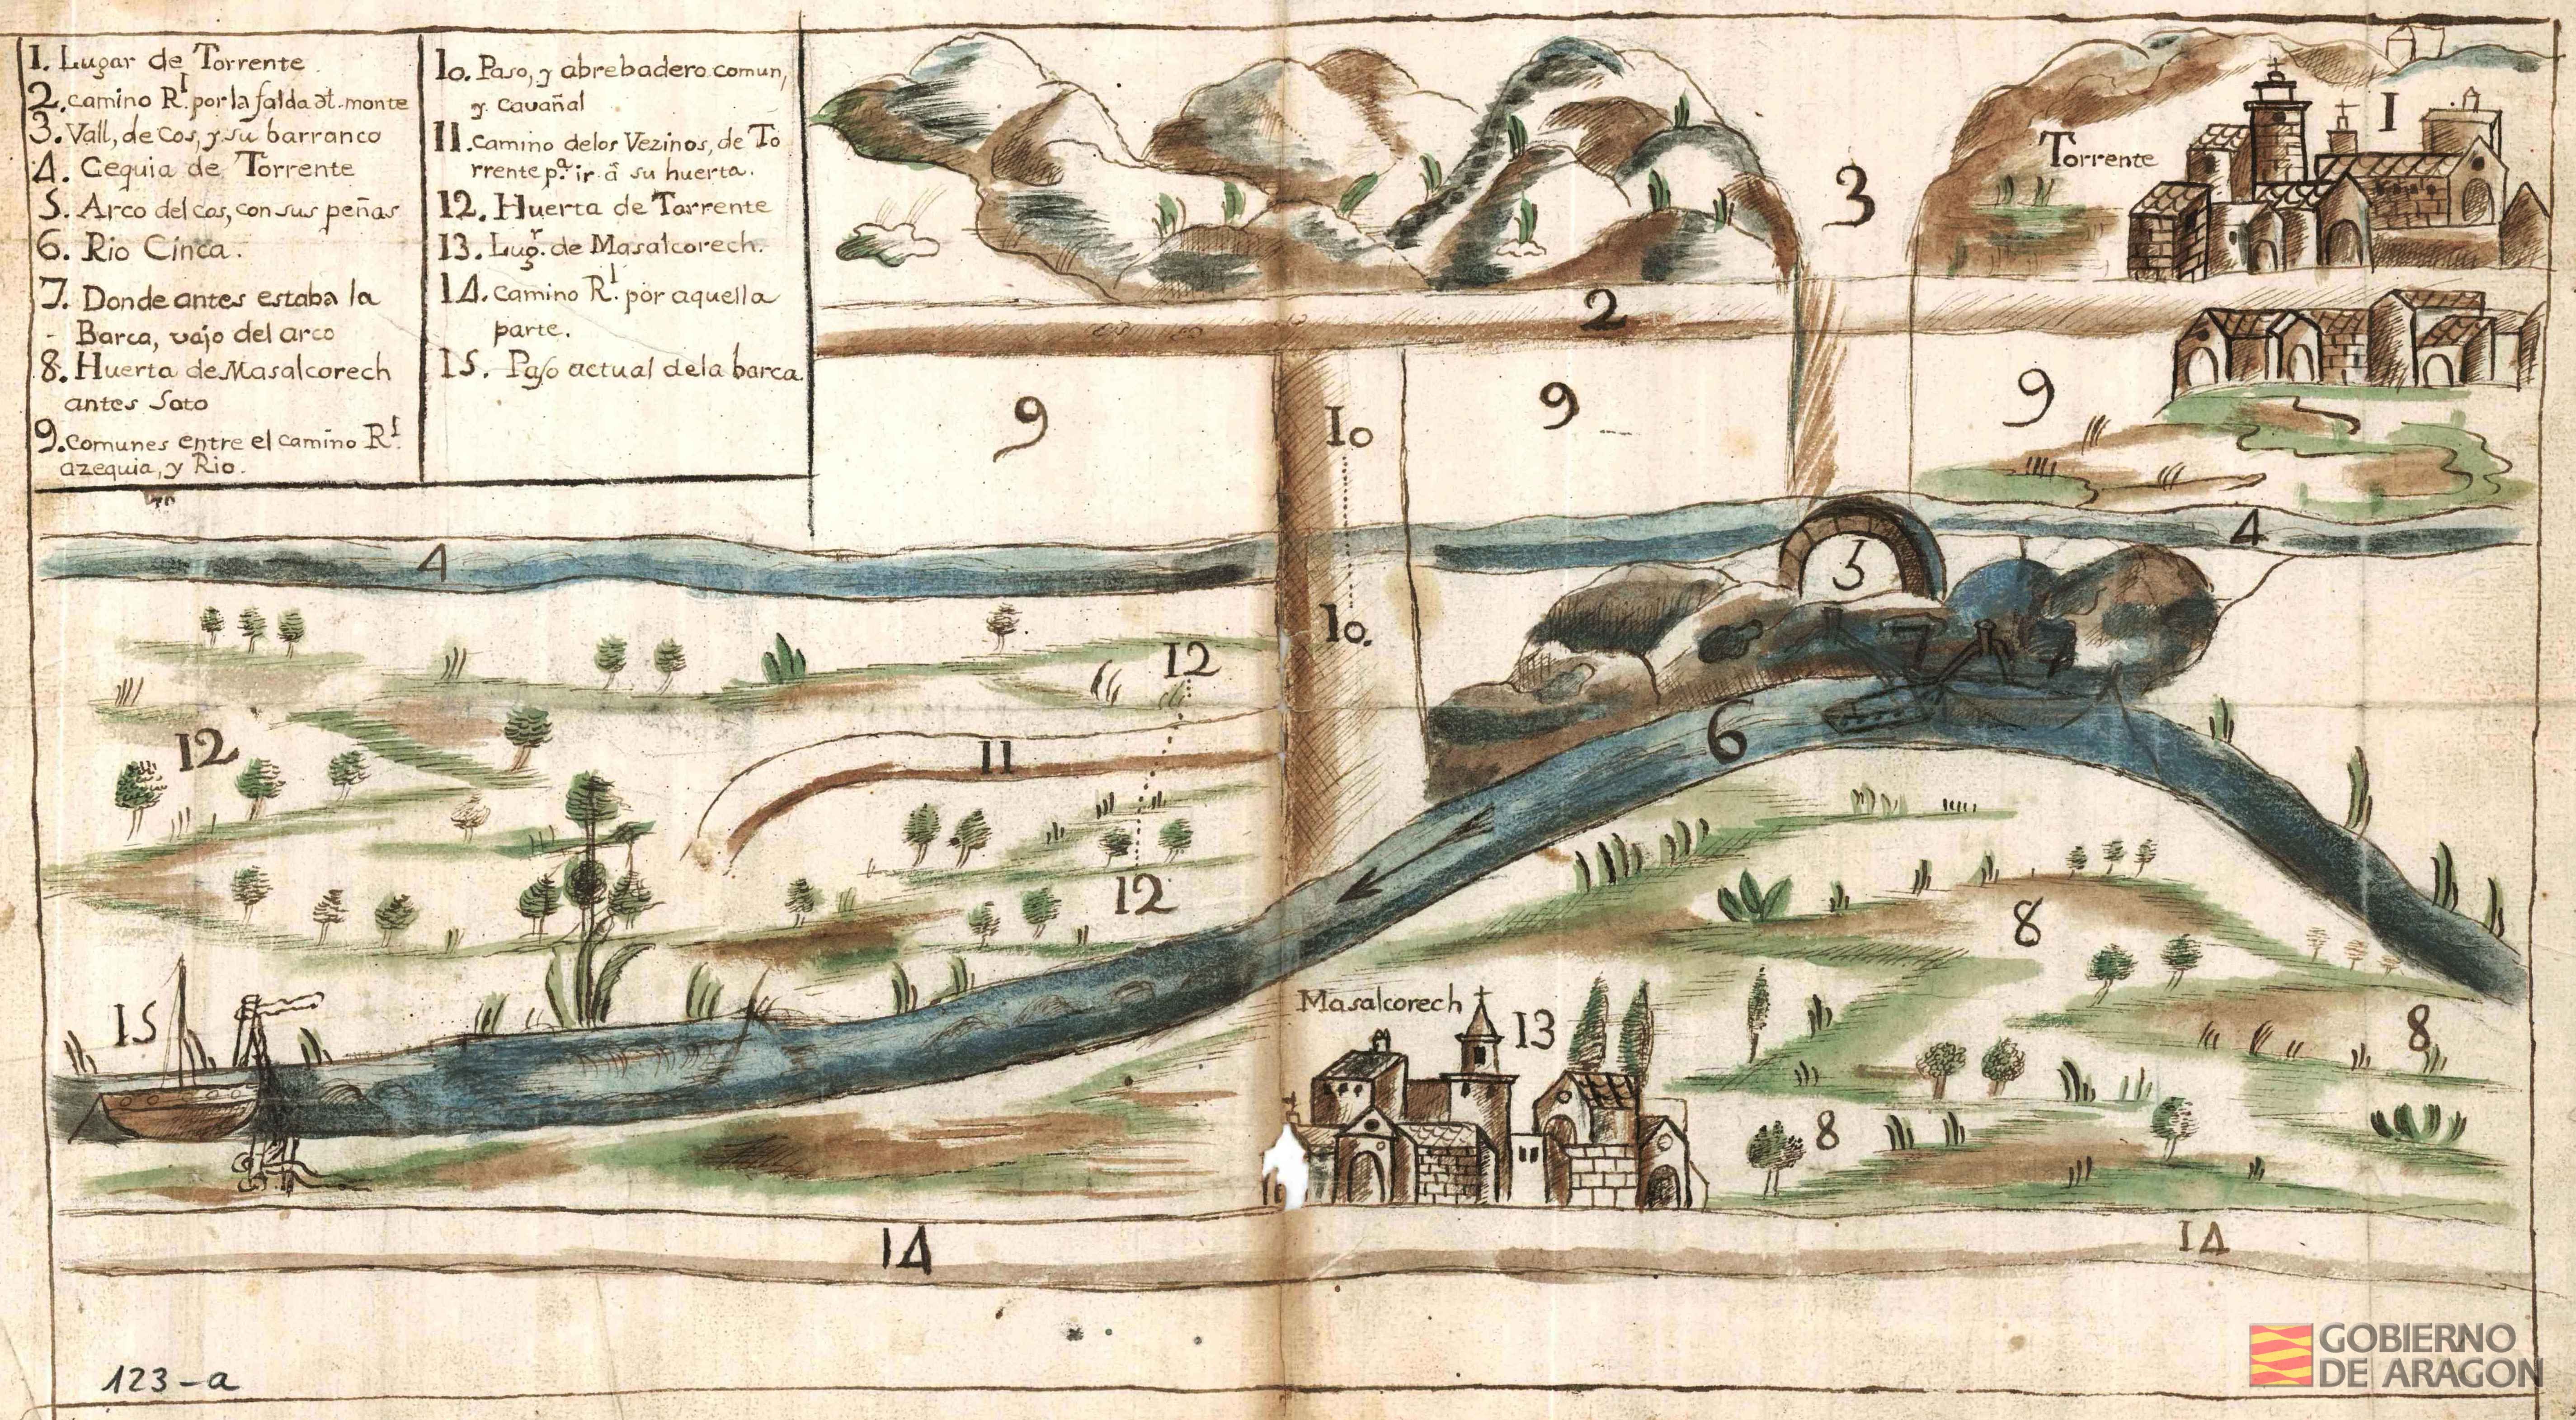 1. Lugar de Torrente
2. camino R.l por la falda dl. monte
3. Vall, de Cos, y su barranco
4. Cequia de Torrente
5. Arco del cos, con sus peñas
6. Rio Cinca.
7. Donde antes estaba la
- Barca, vajo del arco
8. Huerta de Masalcorech
antes Soto
9. Comunes entre el camino R.l
azequia, y Rio.
10. Paso, y abrebadero comun,
y cavañal
11. camino delos Vezinos, de To
rrente p.a ir â su huerta.
12. Huerta de Torrente
13. Lug.r de Masalcorech.
14. camino R.l por aquella
parte.
15. Paso actual dela barca.
1
Torrente
3
2
9
10
9
9
4
5
4
10.
7
12
12
6
11
12
8
15
Masalcorech
13
8
8
14
14
123-a
GOBIERNO
DE ARAGON